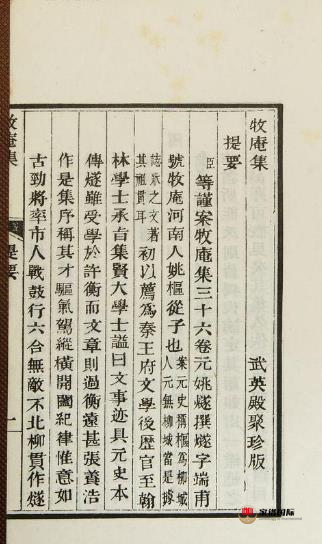 牧庵集
武英殿聚珍版
提要
臣等謹案牧庵集三十六卷元姚燧撰燧字端甫
號牧庵河南人姚樞從子也案元史稱樞為柳城
人元無柳城當是據
其祖貫耳初以薦為秦王府文學後歴官至翰
林學士承旨集賢大學士諡曰文事迹具元史本
傳燧雖受學於許衡而文章則過衡遠甚張養浩
作是集序稱其才驅氣駕縱橫開闔紀律惟意如
古勁將率市人戰鼓行六合無敵不北柳貫作燧
牧庵集
提要
一